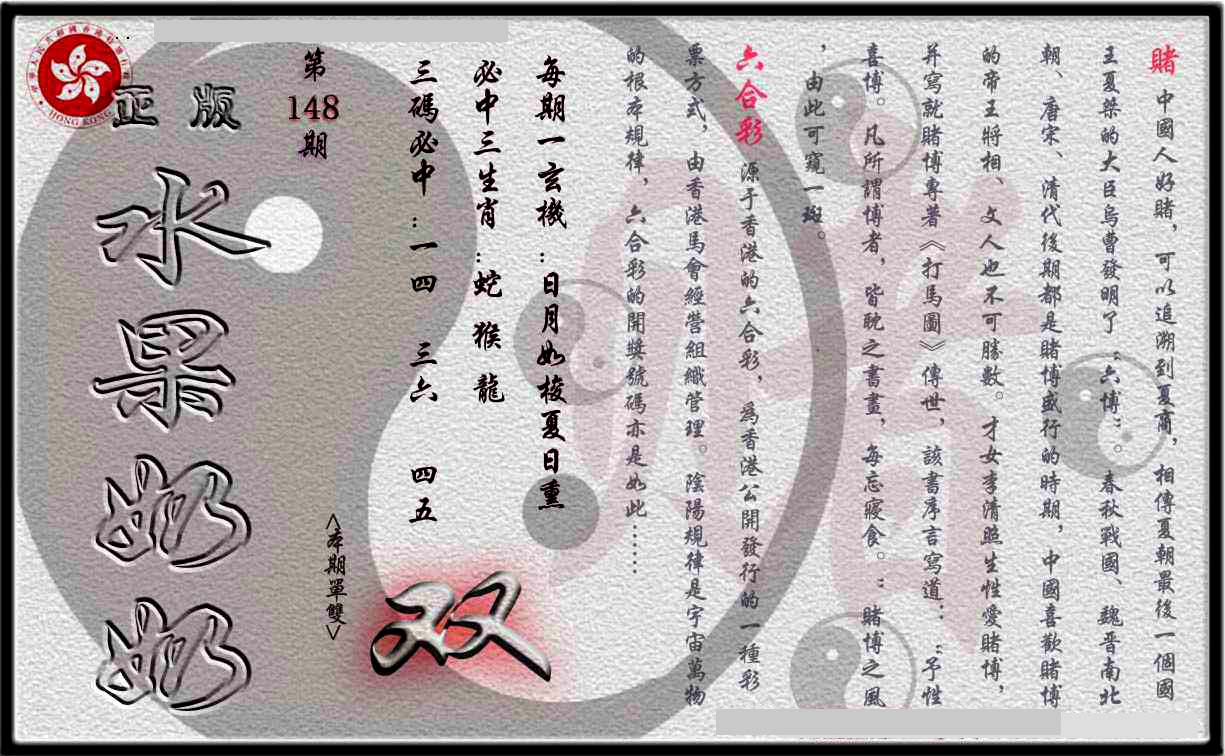 賭 中國人好賭，可以追溯到夏商，相傳夏朝最後一個國
王夏桀的大臣烏曹發明了“六博”。春秋戰國、魏晋南北
朝、唐宋、清代後期都是賭博盛行的時期，中國喜歡賭博
的帝王將相、文人也不可勝數。才女李清照生性愛賭博，
并寫就賭博專著《打馬圖》傳世，該書序言寫道：“予性
喜博。凡所謂博者，皆耽之書畫，每忘寢食。”賭博之風
，由此可窺一斑。
六合彩 源于香港的六合彩，為香港公開發行的一種彩
票方式，由香港馬會經營組織管理。陰陽規律是宇宙萬物
的根本規律，六合彩的開獎號碼亦是如此……
每期一玄機：日月如梭夏日熏
必中三生肖：蛇 猴 龍
三碼必中：一四 三六 四五
第148期
<本期單雙>
双
正版
水果奶奶
HONG KONG